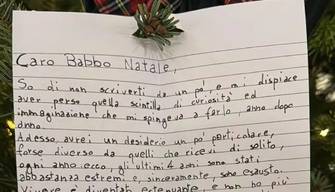 Caro Babbo Natale,
So di non scriverti da un po', e mi dispiace
aver perso quella scintilla di curiosità ed
immaginazione che mi spingeva a farlo, anno dopo
anno.
Adesso avrei un desiderio un po' particolare,
forse diverso da quelli che ricevi di solito,
ogni anno. ecco, gli ultimi 4 anni sono stati
abbastanza estremi e, sinceramente, sono esausto.
Vivere è diventato estenuante, e non ho più